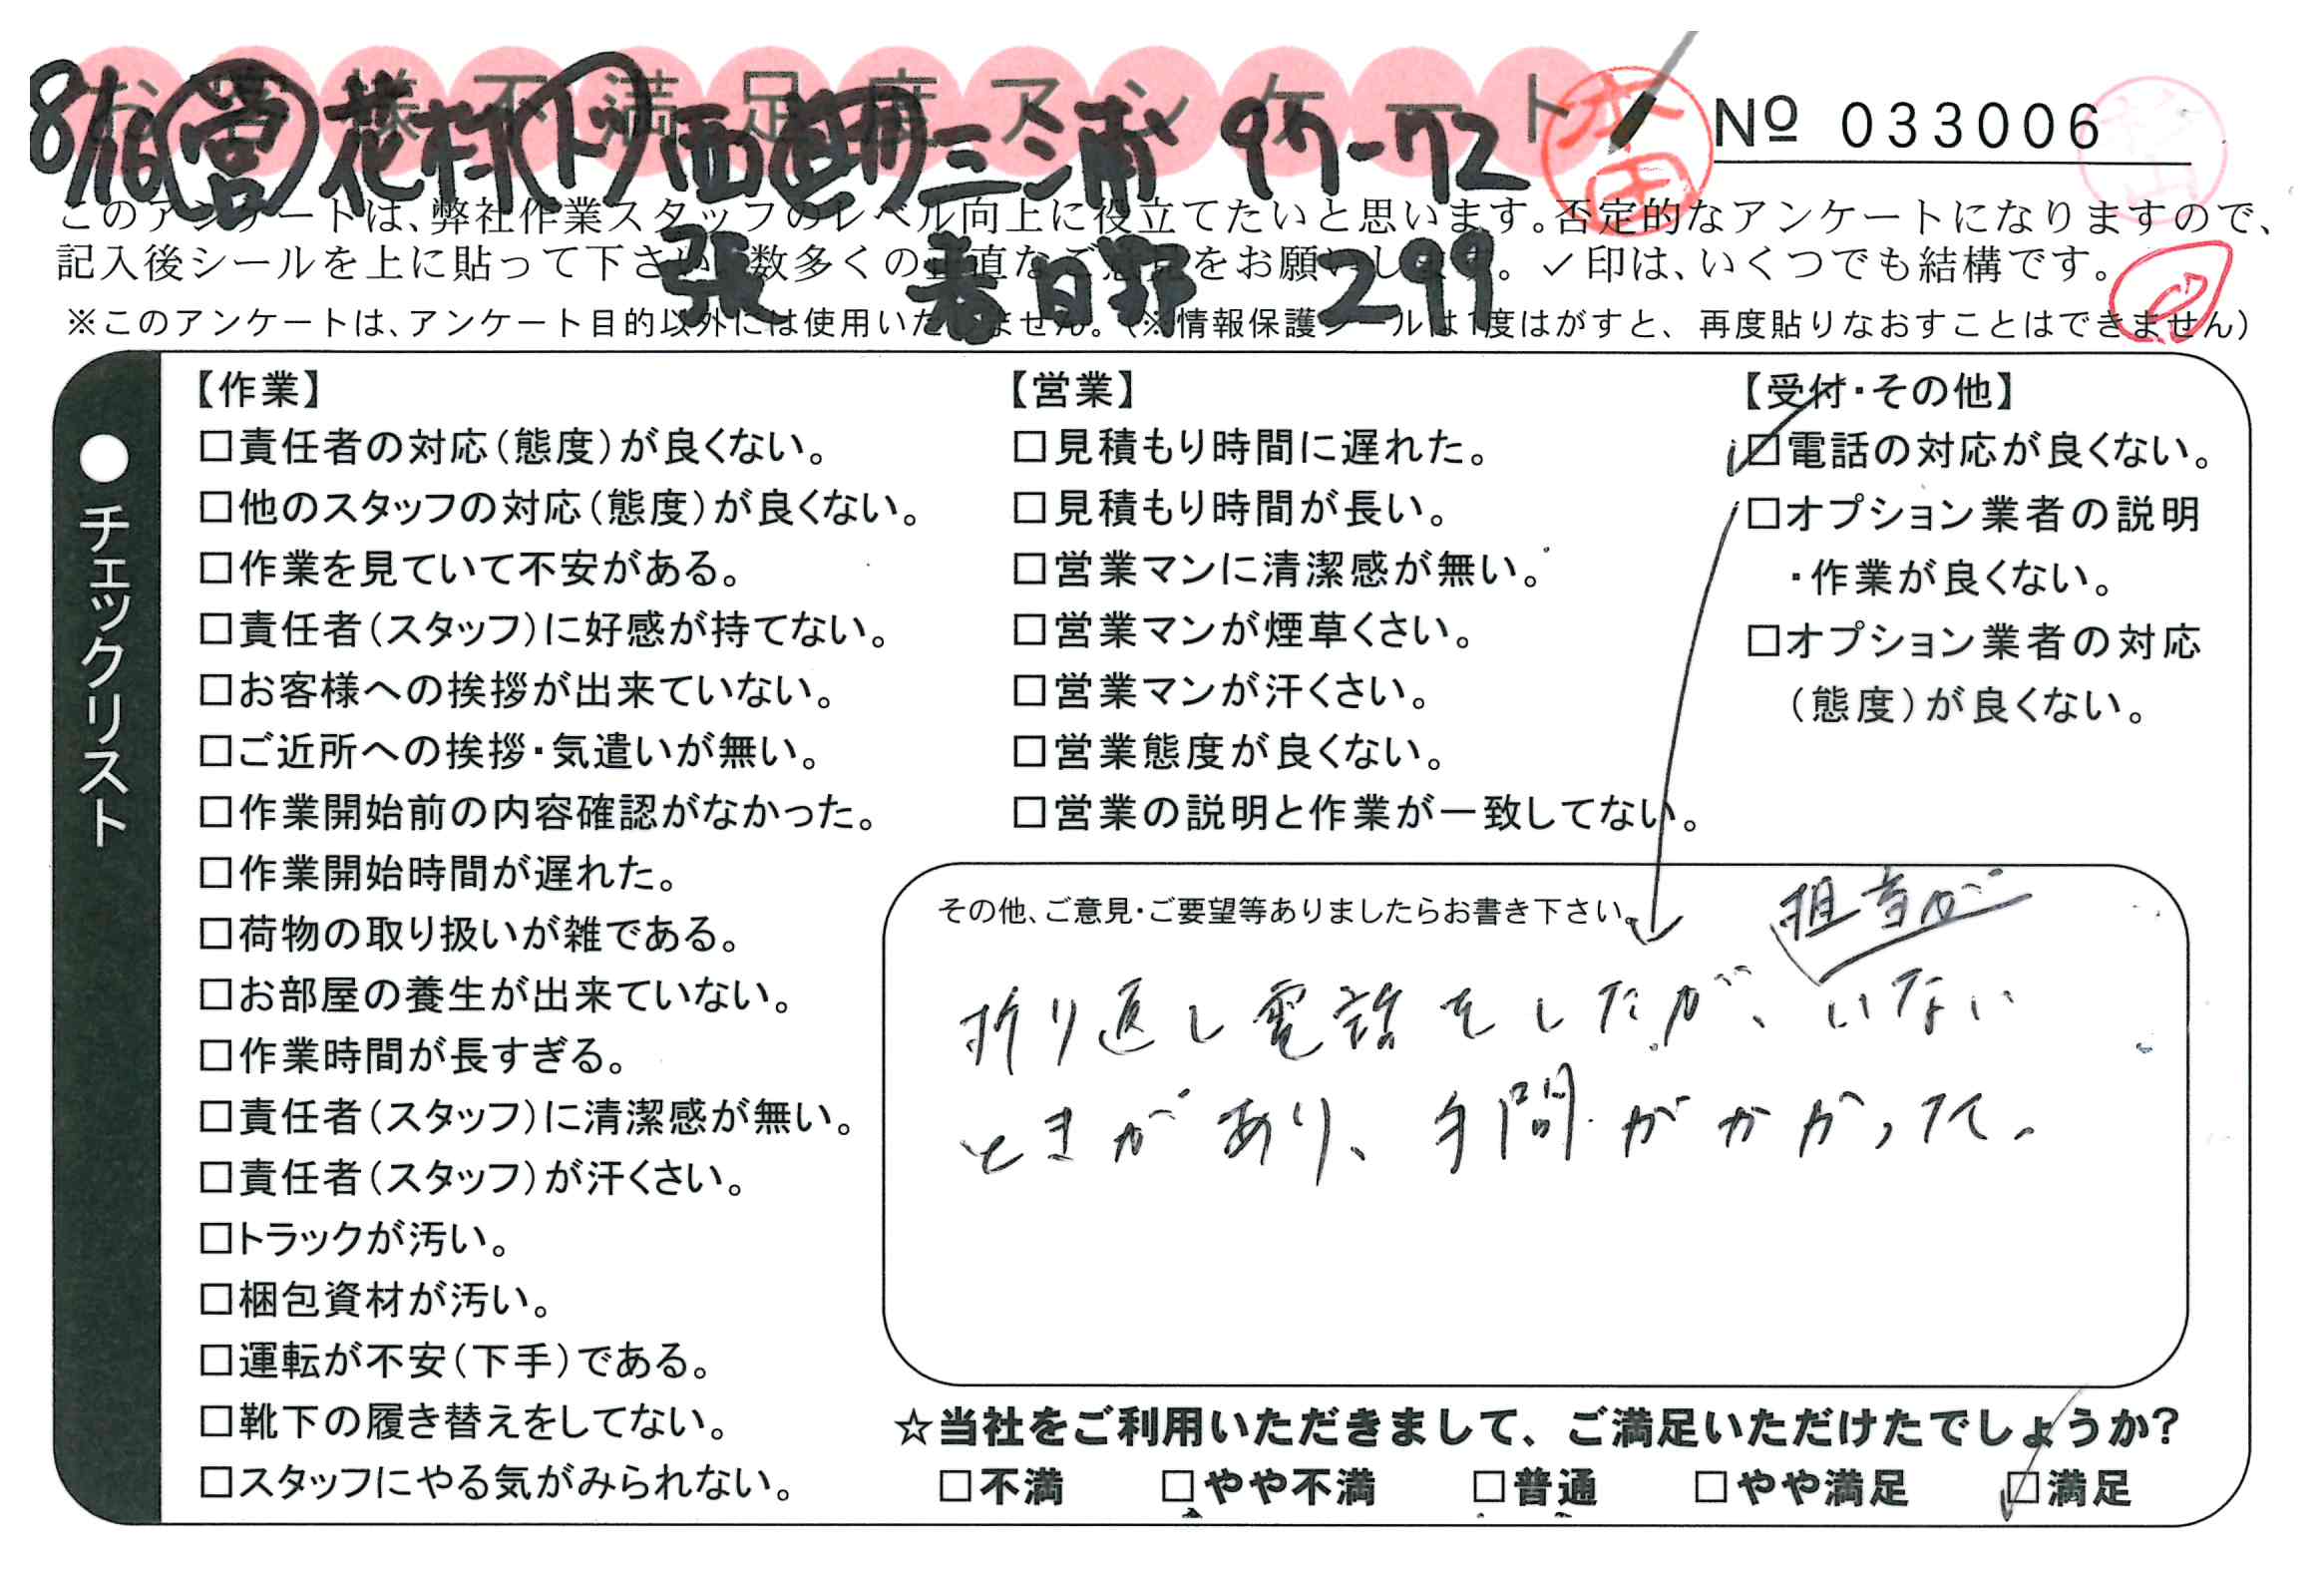 お客様不満足度アンケート
8/16 営 花村 ト 西 助 三浦 97-72
本田
№ 033006
杉山
このアンケートは、弊社作業スタッフのレベル向上に役立てたいと思います。否定的なアンケートになりますので、
記入後シールを上に貼って下さい。数多くの正直なご意見をお願いします。✓印は、いくつでも結構です。
張 春日野 299
※このアンケートは、アンケート目的以外には使用いたしません。(※情報保護シールは1度はがすと、再度貼りなおすことはできません)
●チェックリスト
【作業】
□責任者の対応(態度)が良くない。
□他のスタッフの対応(態度)が良くない。
□作業を見ていて不安がある。
□責任者(スタッフ)に好感が持てない。
□お客様への挨拶が出来ていない。
□ご近所への挨拶・気遣いが無い。
□作業開始前の内容確認がなかった。
□作業開始時間が遅れた。
□荷物の取り扱いが雑である。
□お部屋の養生が出来ていない。
□作業時間が長すぎる。
□責任者(スタッフ)に清潔感が無い。
□責任者(スタッフ)が汗くさい。
□トラックが汚い。
□梱包資材が汚い。
□運転が不安(下手)である。
□靴下の履き替えをしてない。
□スタッフにやる気がみられない。
【営業】
□見積もり時間に遅れた。
□見積もり時間が長い。
□営業マンに清潔感が無い。
□営業マンが煙草くさい。
□営業マンが汗くさい。
□営業態度が良くない。
□営業の説明と作業が一致してない。
【受付・その他】
☑電話の対応が良くない。
□オプション業者の説明
・作業が良くない。
□オプション業者の対応
(態度)が良くない。
その他、ご意見・ご要望等ありましたらお書き下さい。
担当が
折り返し電話をしたが、いない
ときがあり、手間がかかった。
☆当社をご利用いただきまして、ご満足いただけたでしょうか?
□不満 □やや不満 □普通 □やや満足 ☑満足